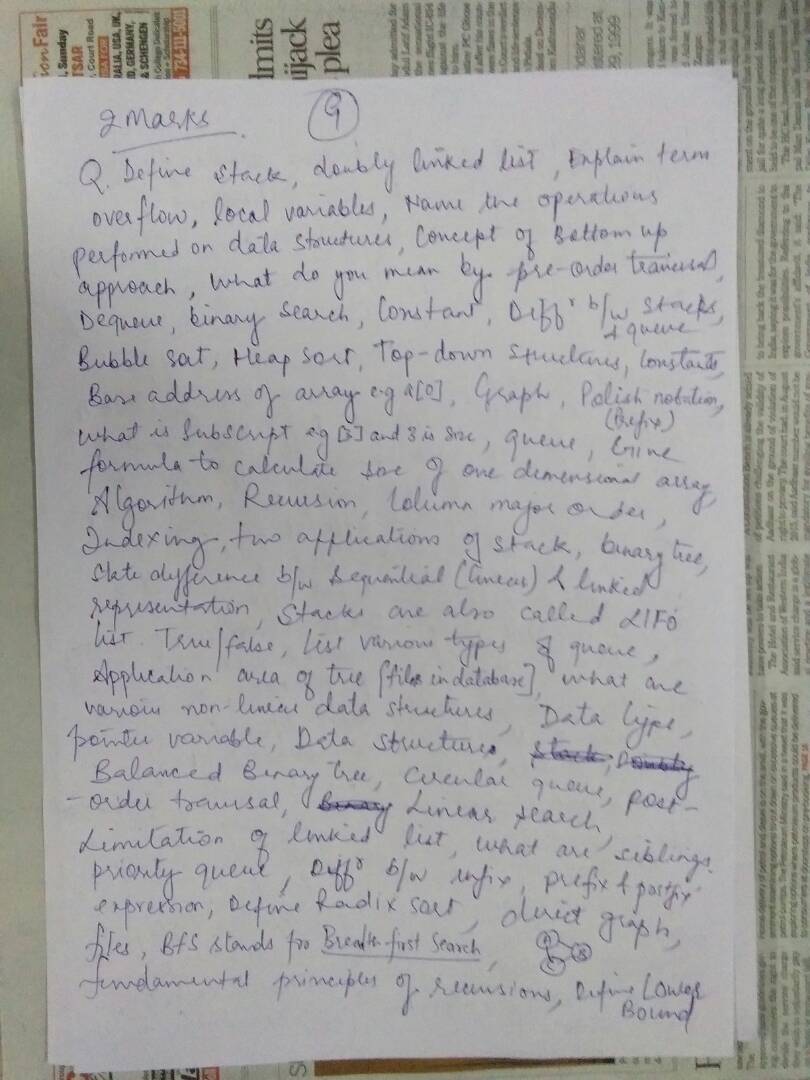 onFair
, Sunday
TSAR
, Court Road
RALIA, USA, UK,
D, GERMANY,
& SCHENGEN
734-101-5001
dmits
uijack
plea
29, 1999
2 Marks
9
Q. Define Stack, doubly linked list, Explain term
overflow, local variables, Name the operations
performed on data structures, Concept of Bottom up
approach, What do you mean by pre-order traversal,
Dequeue, binary Search, Constant, Diffr b/w Stacks,
& queue
Bubble Sort, Heap Sort, Top-down structures, Constants,
Base address of array e.g a[0], Graph, Polish notation,
(Prefix)
what is Subscript eg [3] and 3 is size, queue, Give
formula to calculate size of one dimensional array,
Algorithm, Recursion, Column major order,
Indexing, two applications of stack, binary tree,
State difference b/w Sequential (linear) & linked
representation, Stacks are also called LIFO
list. True/false, List various types of queue,
Application area of tree [files in database], what are
various non-linear data structures, Data type,
pointer variable, Data structures, Stack, Doubly
Balanced Binary Tree, Circular queue, Post-
-order traversal, Binary Linear search,
Limitation of linked list, what are siblings.
priority queue, Diffr b/w infix, prefix & postfix
expression, Define Radix sort, direct graph,
files, BFS stands for Breath-first Search,
fundamental principles of recursions, Define Lower
Bound